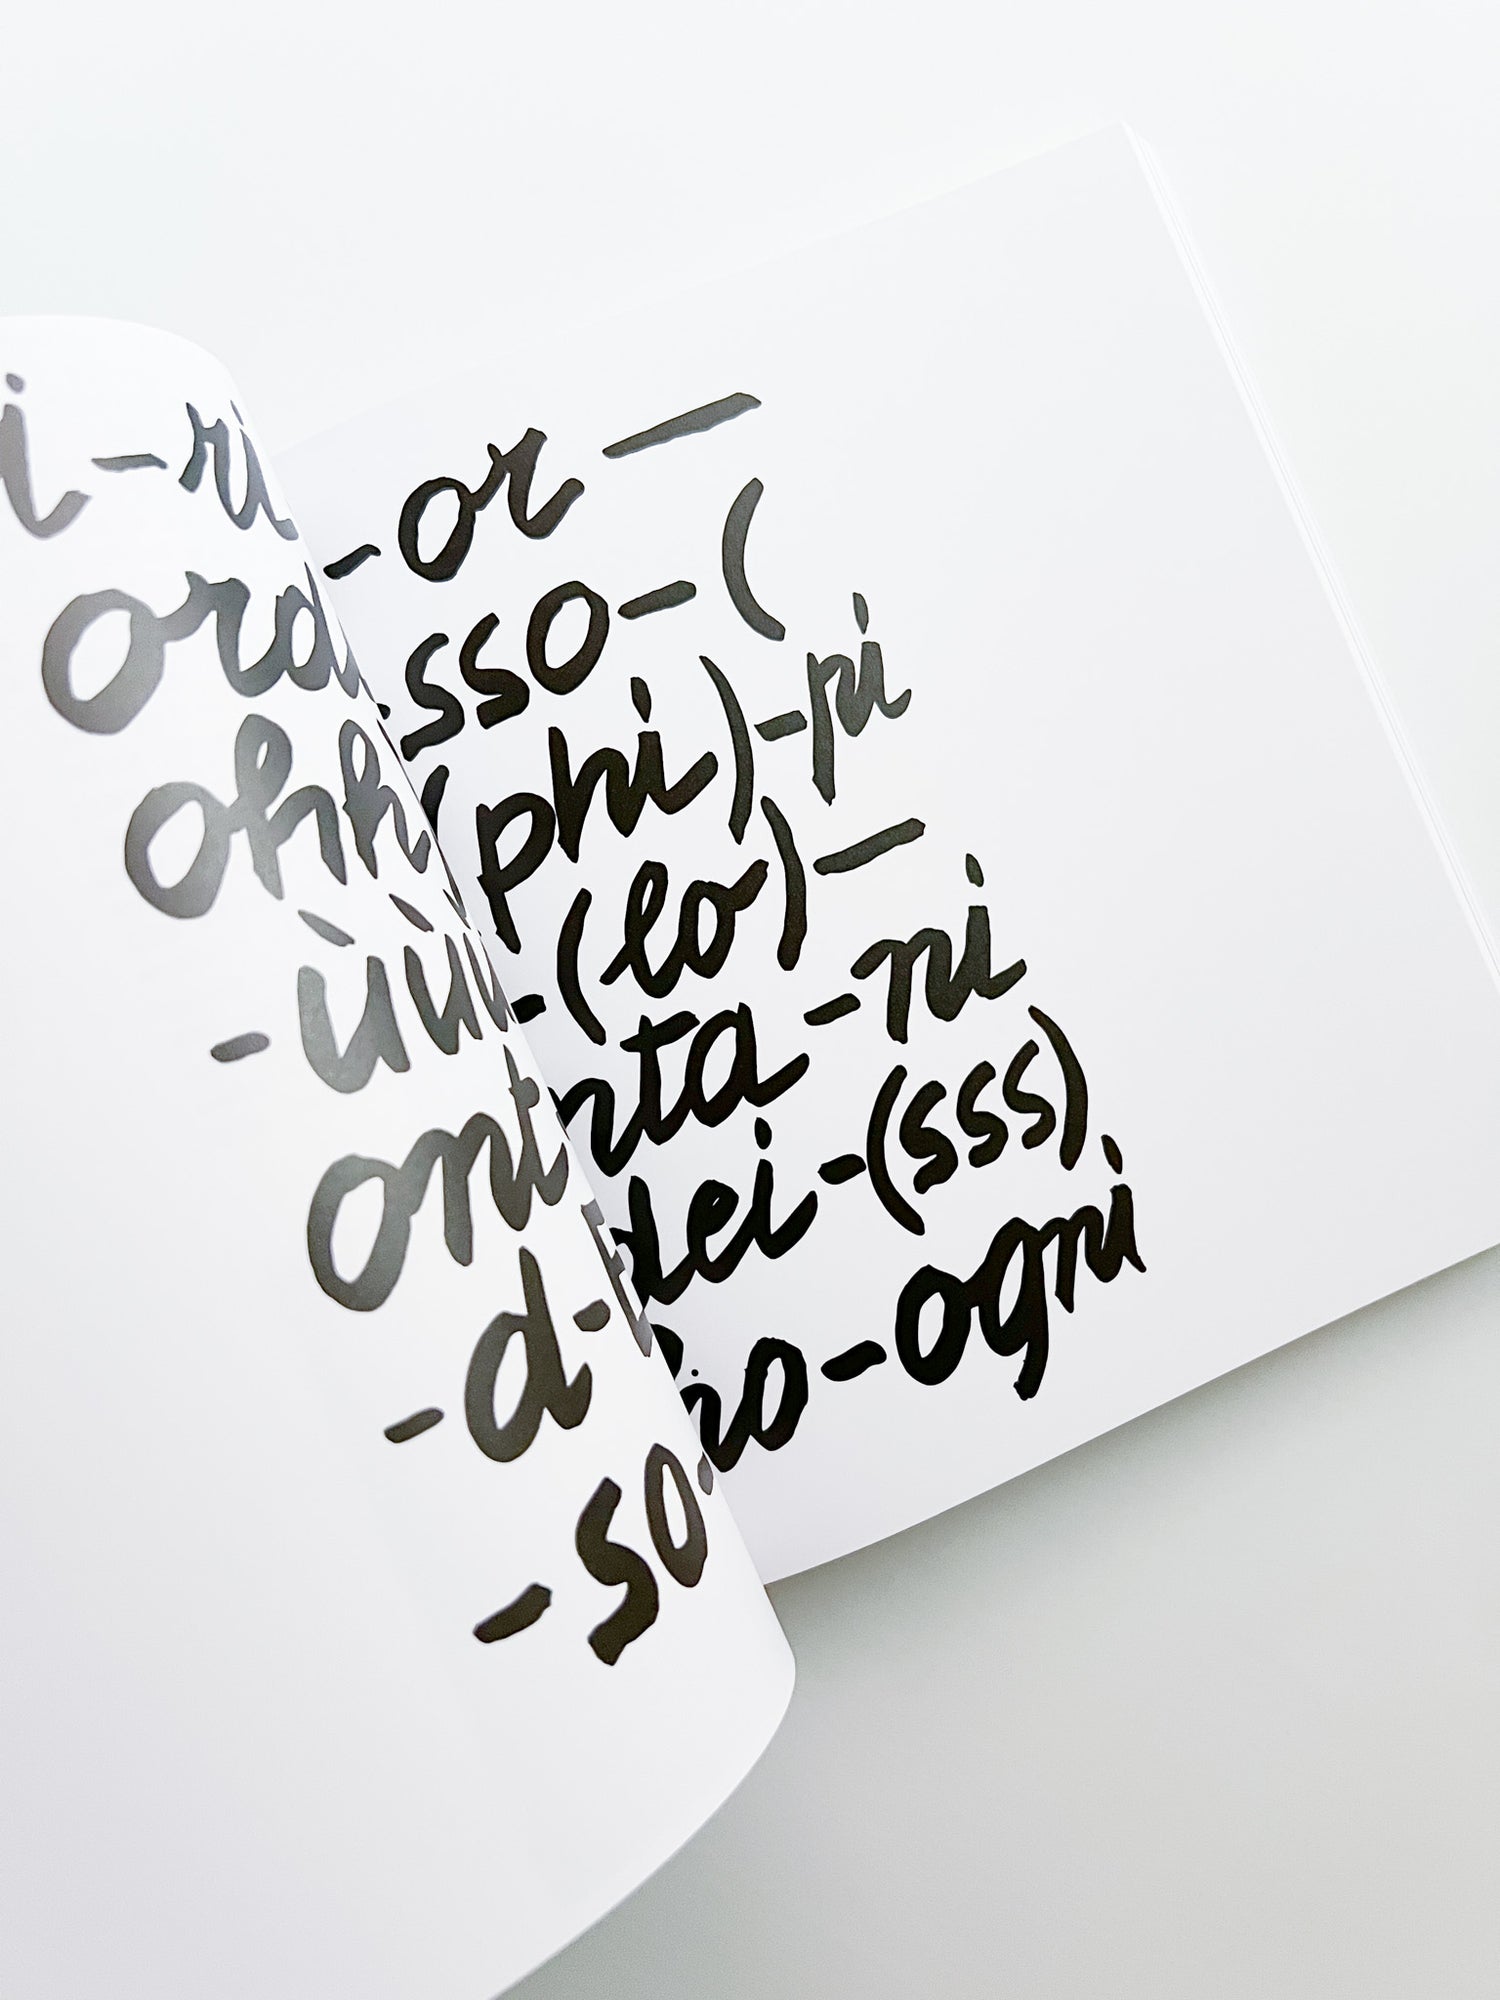 i-ri
ord
ohh
-ùù
ont
-d-E
-so
-or-
sso-(
(phi)-pi
-(lo)-
nta-ni
dei-(sss)
-ogni